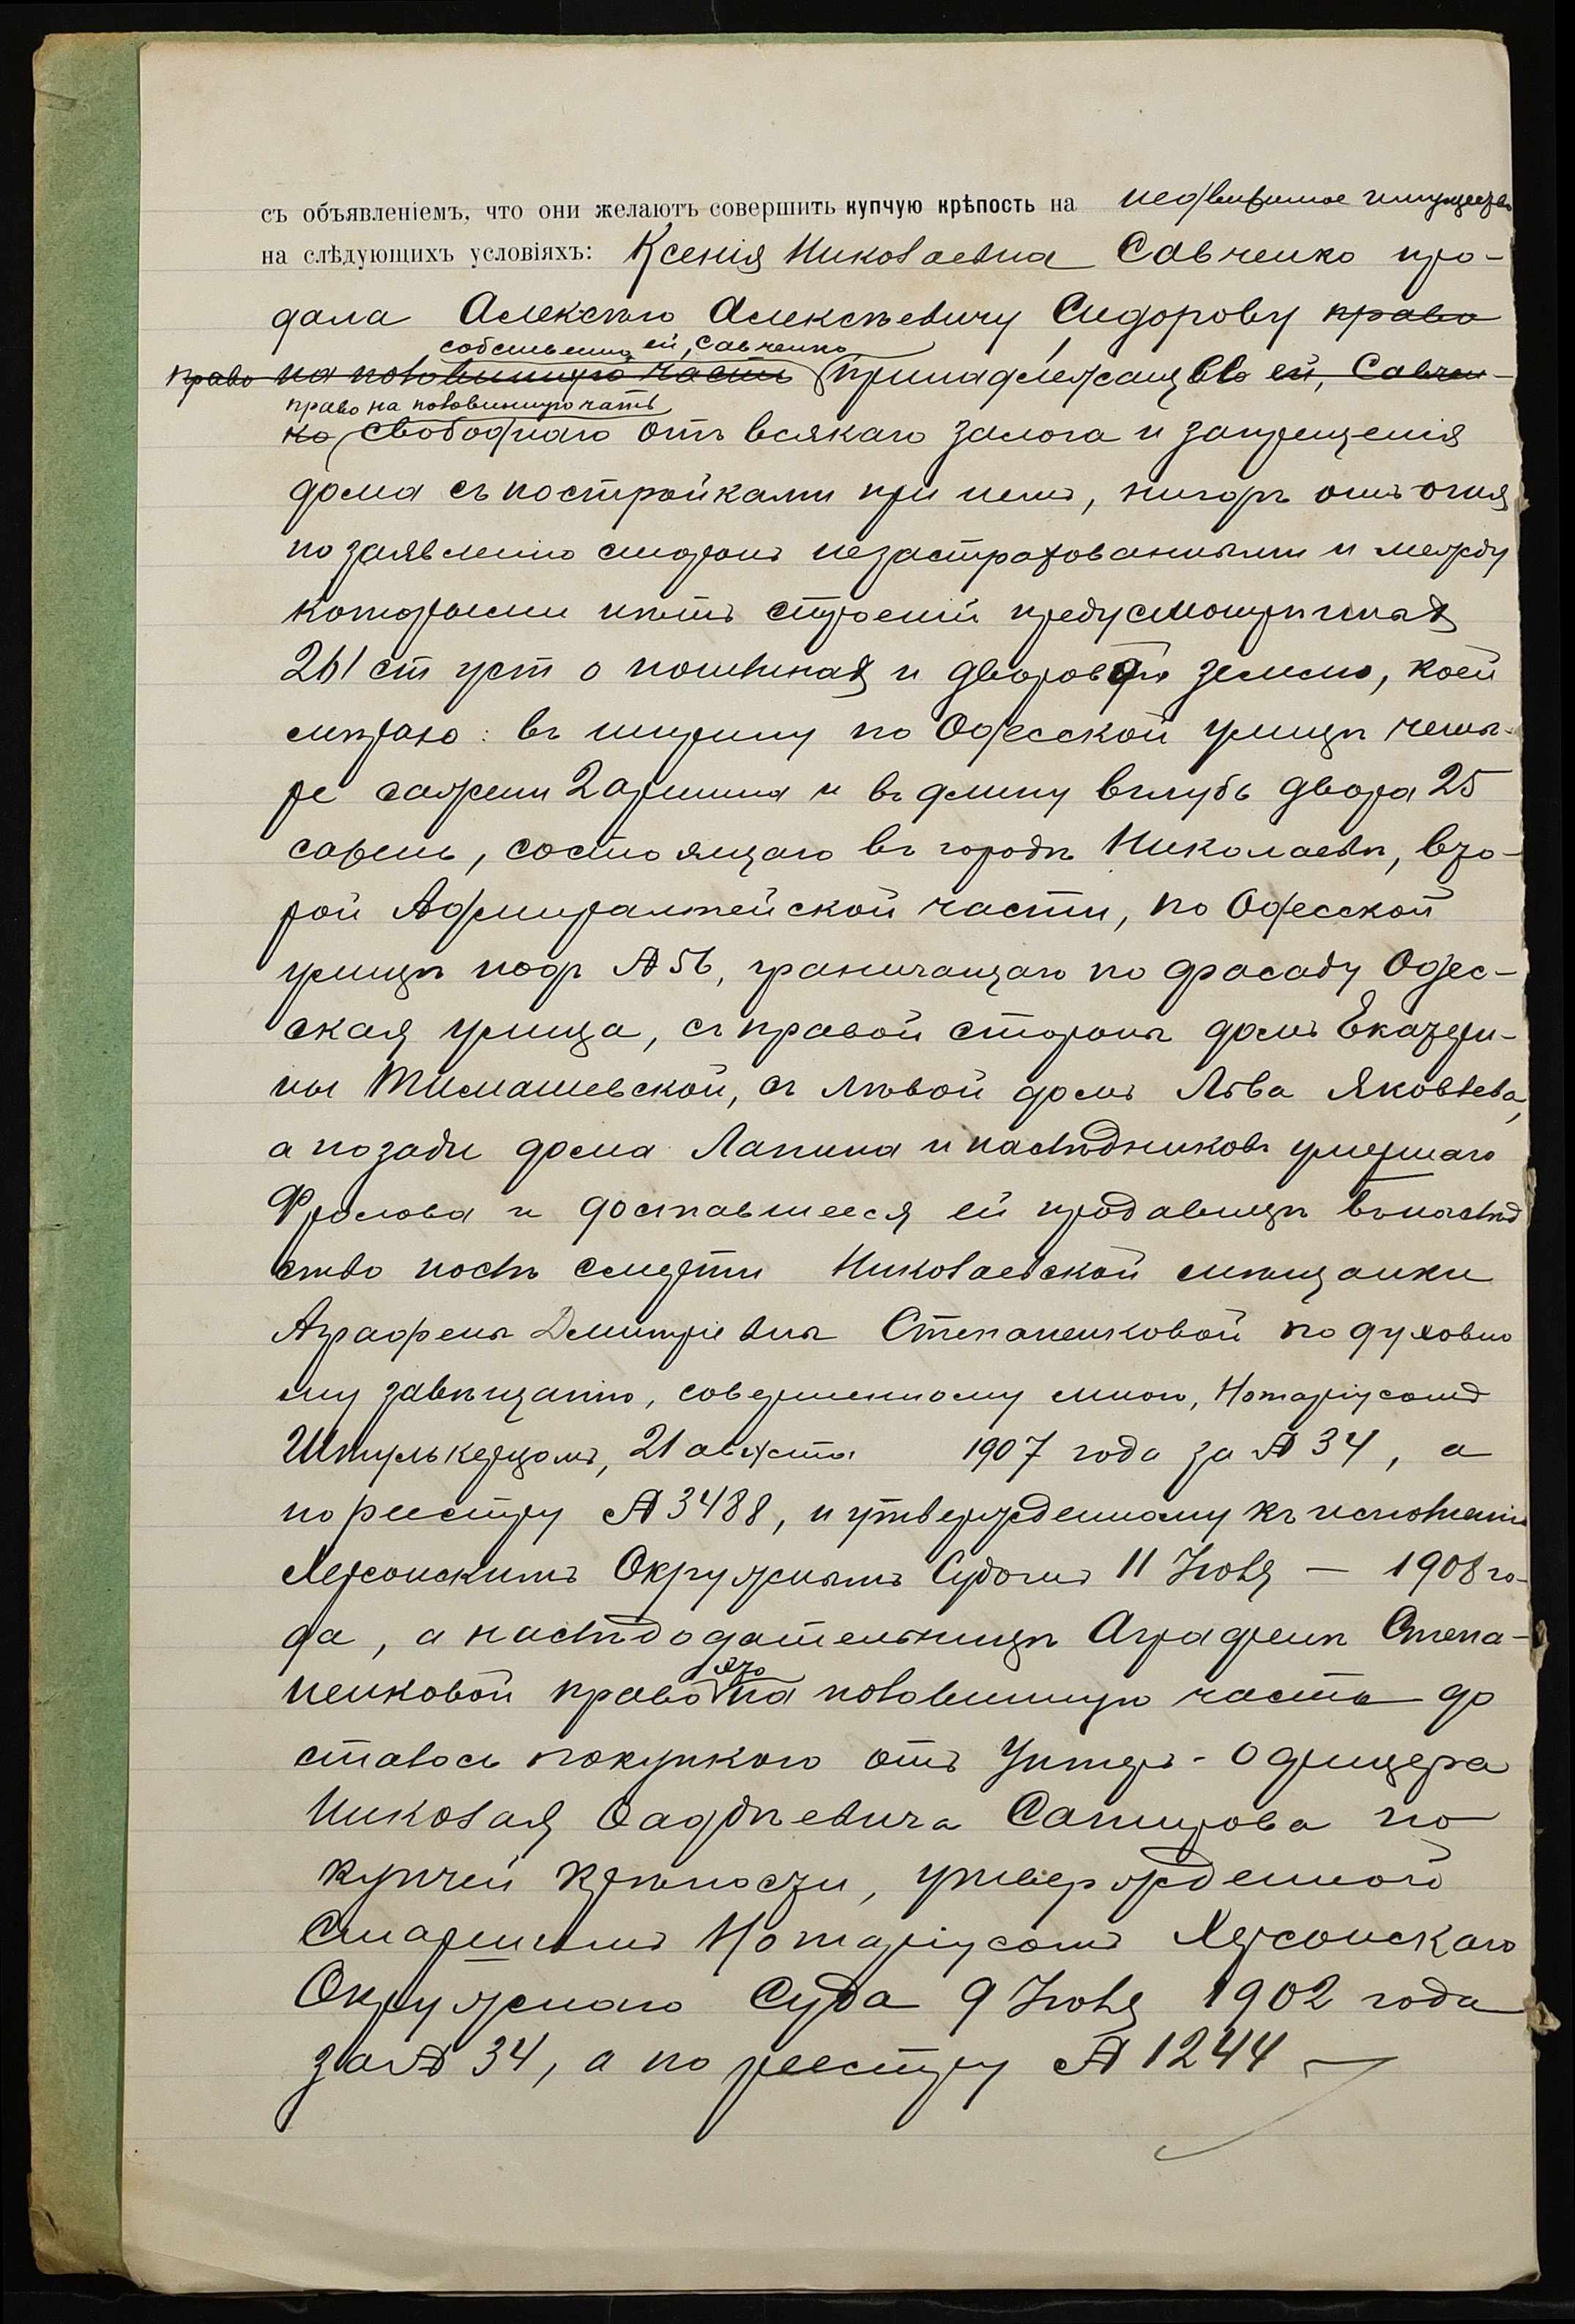 съ объявленіемъ, что они желаютъ совершить купчую крѣпость на недвижимое имущество
на слѣдующихъ условіяхъ: Ксенія Николаевна Савченко про-
дала Алексѣю Алексѣевичу Сидорову право
собственно ей, Савченко
право на половинную часть принадлежащее ей, Савчен-
право на половинную часть
ко свободнаго отъ всякаго залога и запрещенія
дома съ постройками при немъ, нигдѣ отъ огня
по заявленію сторонъ незастрахованными и между
которыми нѣтъ строеній предусмотрѣнныхъ
261 ст уст о пошлинах и дворовою землею, коей
мѣрою: въ ширину по Одесской улицѣ четы-
ре сажени 2 аршина и въ длину вглубь двора 25
сажень, состоящаго въ городѣ Николаевѣ, вто-
рой Адмиралтейской части, по Одесской
улицѣ подъ № 56, граничащаго по фасаду Одес-
ская улица, съ правой стороны домъ Екатери-
ны Тимашевской, съ лѣвой домъ Льва Яковлева,
а позади дома Лапина и наслѣдниковъ умершаго
Фролова и доставшееся ей продавицѣ въ наслѣд
ство послѣ смерти Николаевской мѣщанки
Аграфены Дмитріевны Степаненковой по духовно
му завѣщанію, совершенному мною, Нотаріусомъ
Штулькерцомъ, 21 августа 1907 года за № 34, а
по реестру № 3488, и утвержденному къ исполненію
Херсонскимъ Окружнымъ Судомъ 11 Іюля — 1908 го-
да, а наслѣдодательницѣ Аграфенѣ Степа-
это
ненковой право на половинную часть до
сталось покупкою отъ Унтеръ-Офицера
Николая Фаддѣевича Сапирова по
купчей крѣпости, утвержденной
Старшимъ Нотаріусомъ Херсонскаго
Окружнаго Суда 9 Іюля 1902 года
за № 34, а по реестру № 1244 —